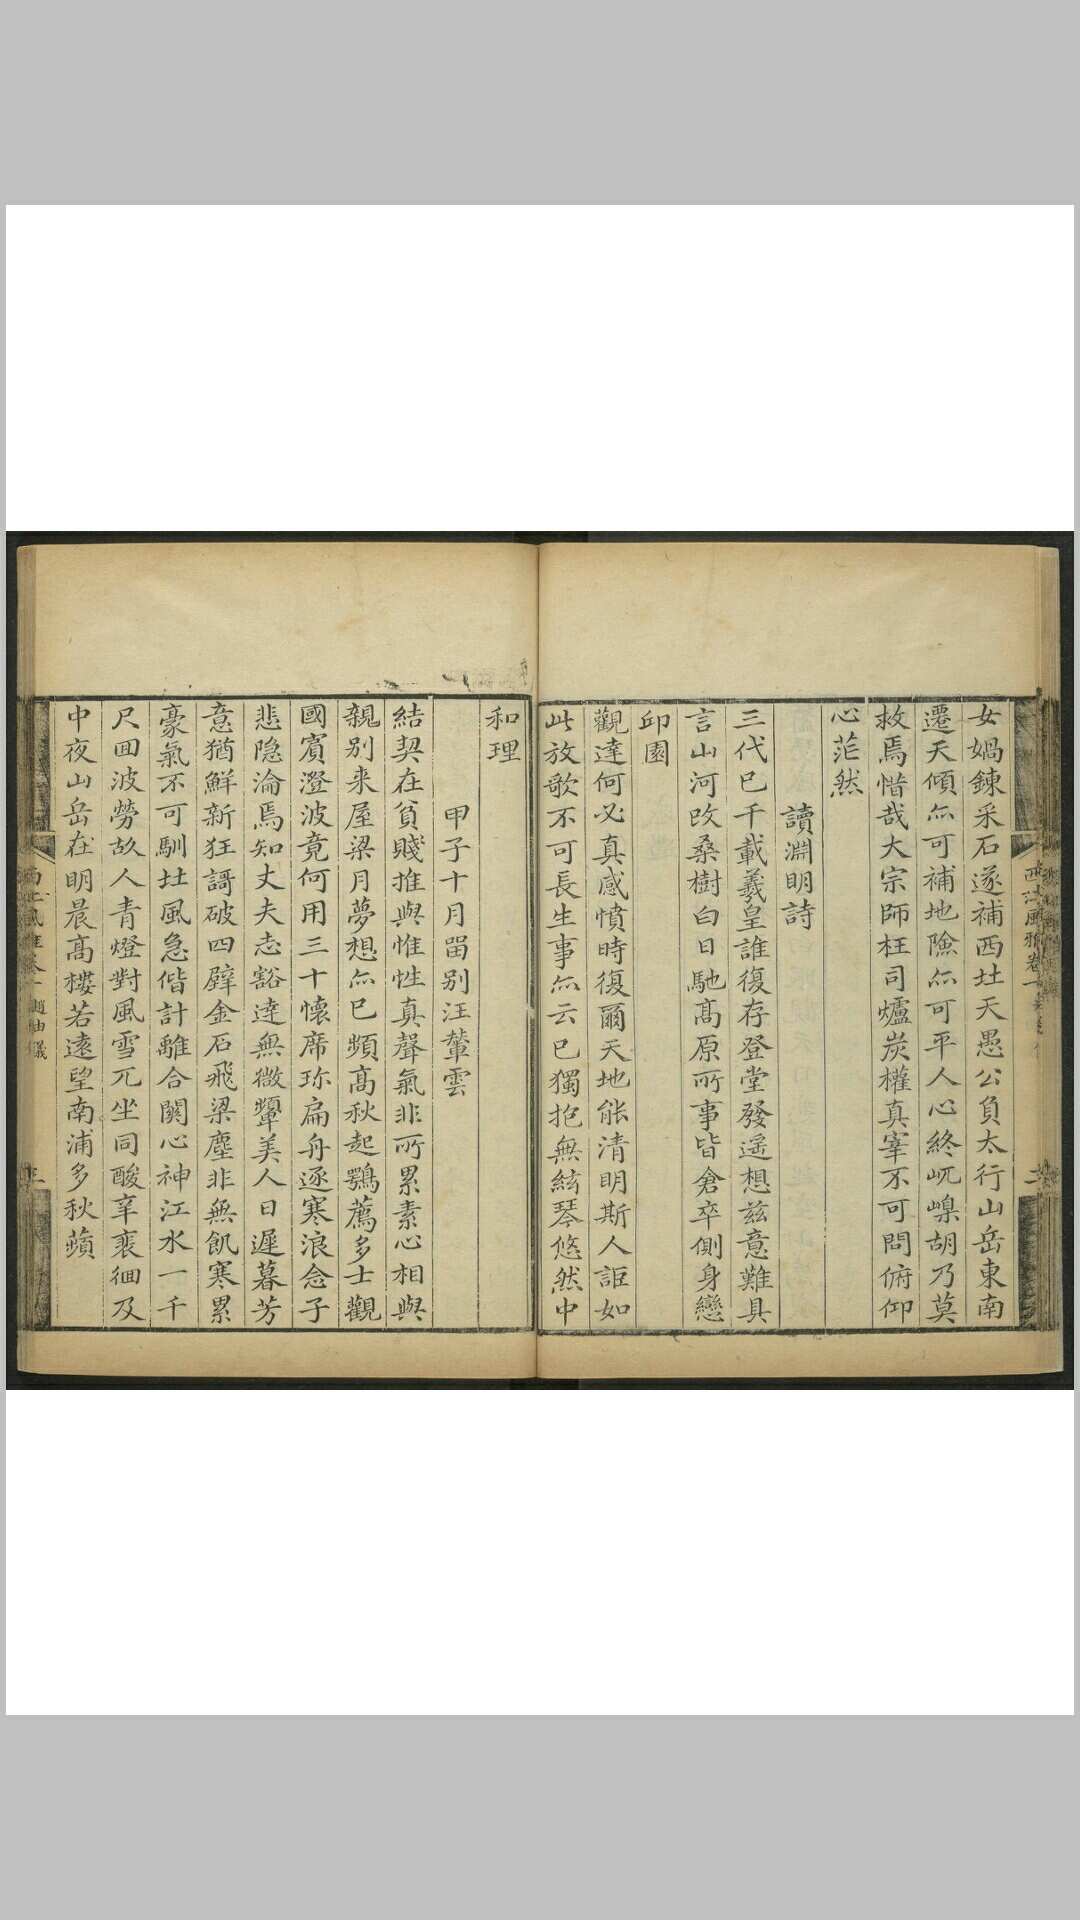 女媧鍊采石遂補西北天愚公負太行山岳東南
遷天傾亦可補地險亦可平人心終屼嵲胡乃莫
救焉惜哉大宗師枉司爐炭權真宰不可問俯仰
心茫然
讀淵明詩
三代已千載羲皇誰復存登堂發遥想兹意難具
言山河改桑樹白日馳高原所事皆倉卒側身戀
邱園
觀達何必真感憤時復爾天地能清明斯人詎如
此放歌不可長生事亦云已獨抱無絃琴悠然中
和理
甲子十月留别汪輦雲
結契在貧賤推與惟性真聲氣非所累素心相與
親别来屋梁月夢想亦已頻高秋起鶚薦多士觀
國賓澄波竟何用三十懷席珍扁舟逐寒浪念子
悲隐淪焉知丈夫志豁達無微顰美人日遲暮芳
意猶鮮新狂謌破四壁金石飛梁塵非無飢寒累
豪氣不可馴北風急偕計離合關心神江水一千
尺囬波勞故人青燈對風雪兀坐同酸辛裹徊及
中夜山岳在明晨高樓若遠望南浦多秋蘋